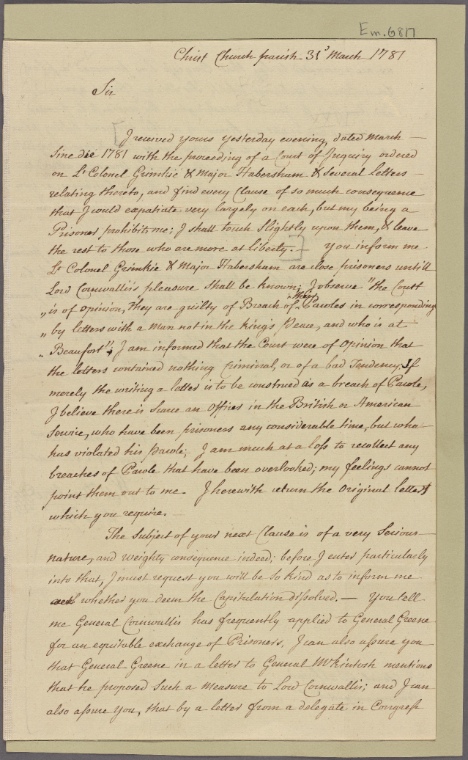 Em. 6817
Christ Church parish 31st March 1781
Sir
I received yours yesterday evening, dated March
Sine die 1781 with the proceeding of a Court of Inquiry ordered
on Lt Colonel Grimkie & Major Habersham & several letters
relating thereto, and find every Clause of so much consequence
that I could expatiate very largely on each, but my being a
Prisoner prohibits me; I shall touch slightly upon them, & leave
the rest to those who are more at liberty. — You inform me
Lt Colonel Grimkie & Major Habersham are close prisoners untill
Lord Cornwallis's pleasure shall be known; I observe "the Court
"is of opinion, they are guilty of Breach of their Paroles in corresponding
"by letters with a man not in the King's Peace, and who is at
"Beaufort" I am informed that the Court were of Opinion that
the letters contained nothing criminal, or of a bad Tendency, If
merely the writing a letter is to be construed as a breach of Parole,
I believe there is scarce an Officer in the British or American
Service, who have been prisoners any considerable time, but who
has violated his Parole; I am much at a loss to recollect any
breaches of Parole that have been overlooked; my feelings cannot
point them out to me. I herewith return the Original letters
which you require. —
The Subject of your next Clause is of a very Serious
nature, and weighty consequence indeed; before I enter particularly
into that, I must request you will be so kind as to inform me
whether you deem the Capitulation dissolved. — You tell
me General Cornwallis has frequently applied to General Greene
for an equitable exchange of Prisoners, I can also assure you
that General Greene in a letter to General McKintosh mentions
that he proposed such a measure to Lord Cornwallis; and I can
also assure you, that by a letter from a delegate in Congress